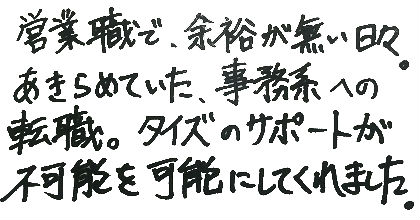 営業職で、余裕が無い日々。
あきらめていた、事務系への
転職。タイズのサポートが
不可能を可能にしてくれました。